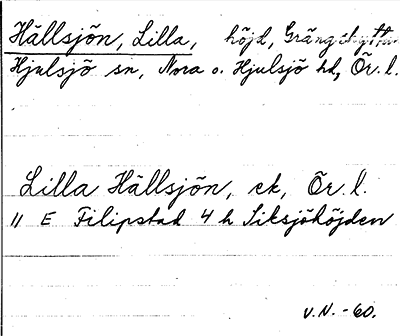 Hällsjön, Lilla, höjd, Grängshyttan
Hjulsjö sn, Nora o. Hjulsjö hd, Ör. l.
Lilla Hällsjön, ek, Ör. l.
11 E Filipstad 4 h Siksjöhöjden
V.N. -60.